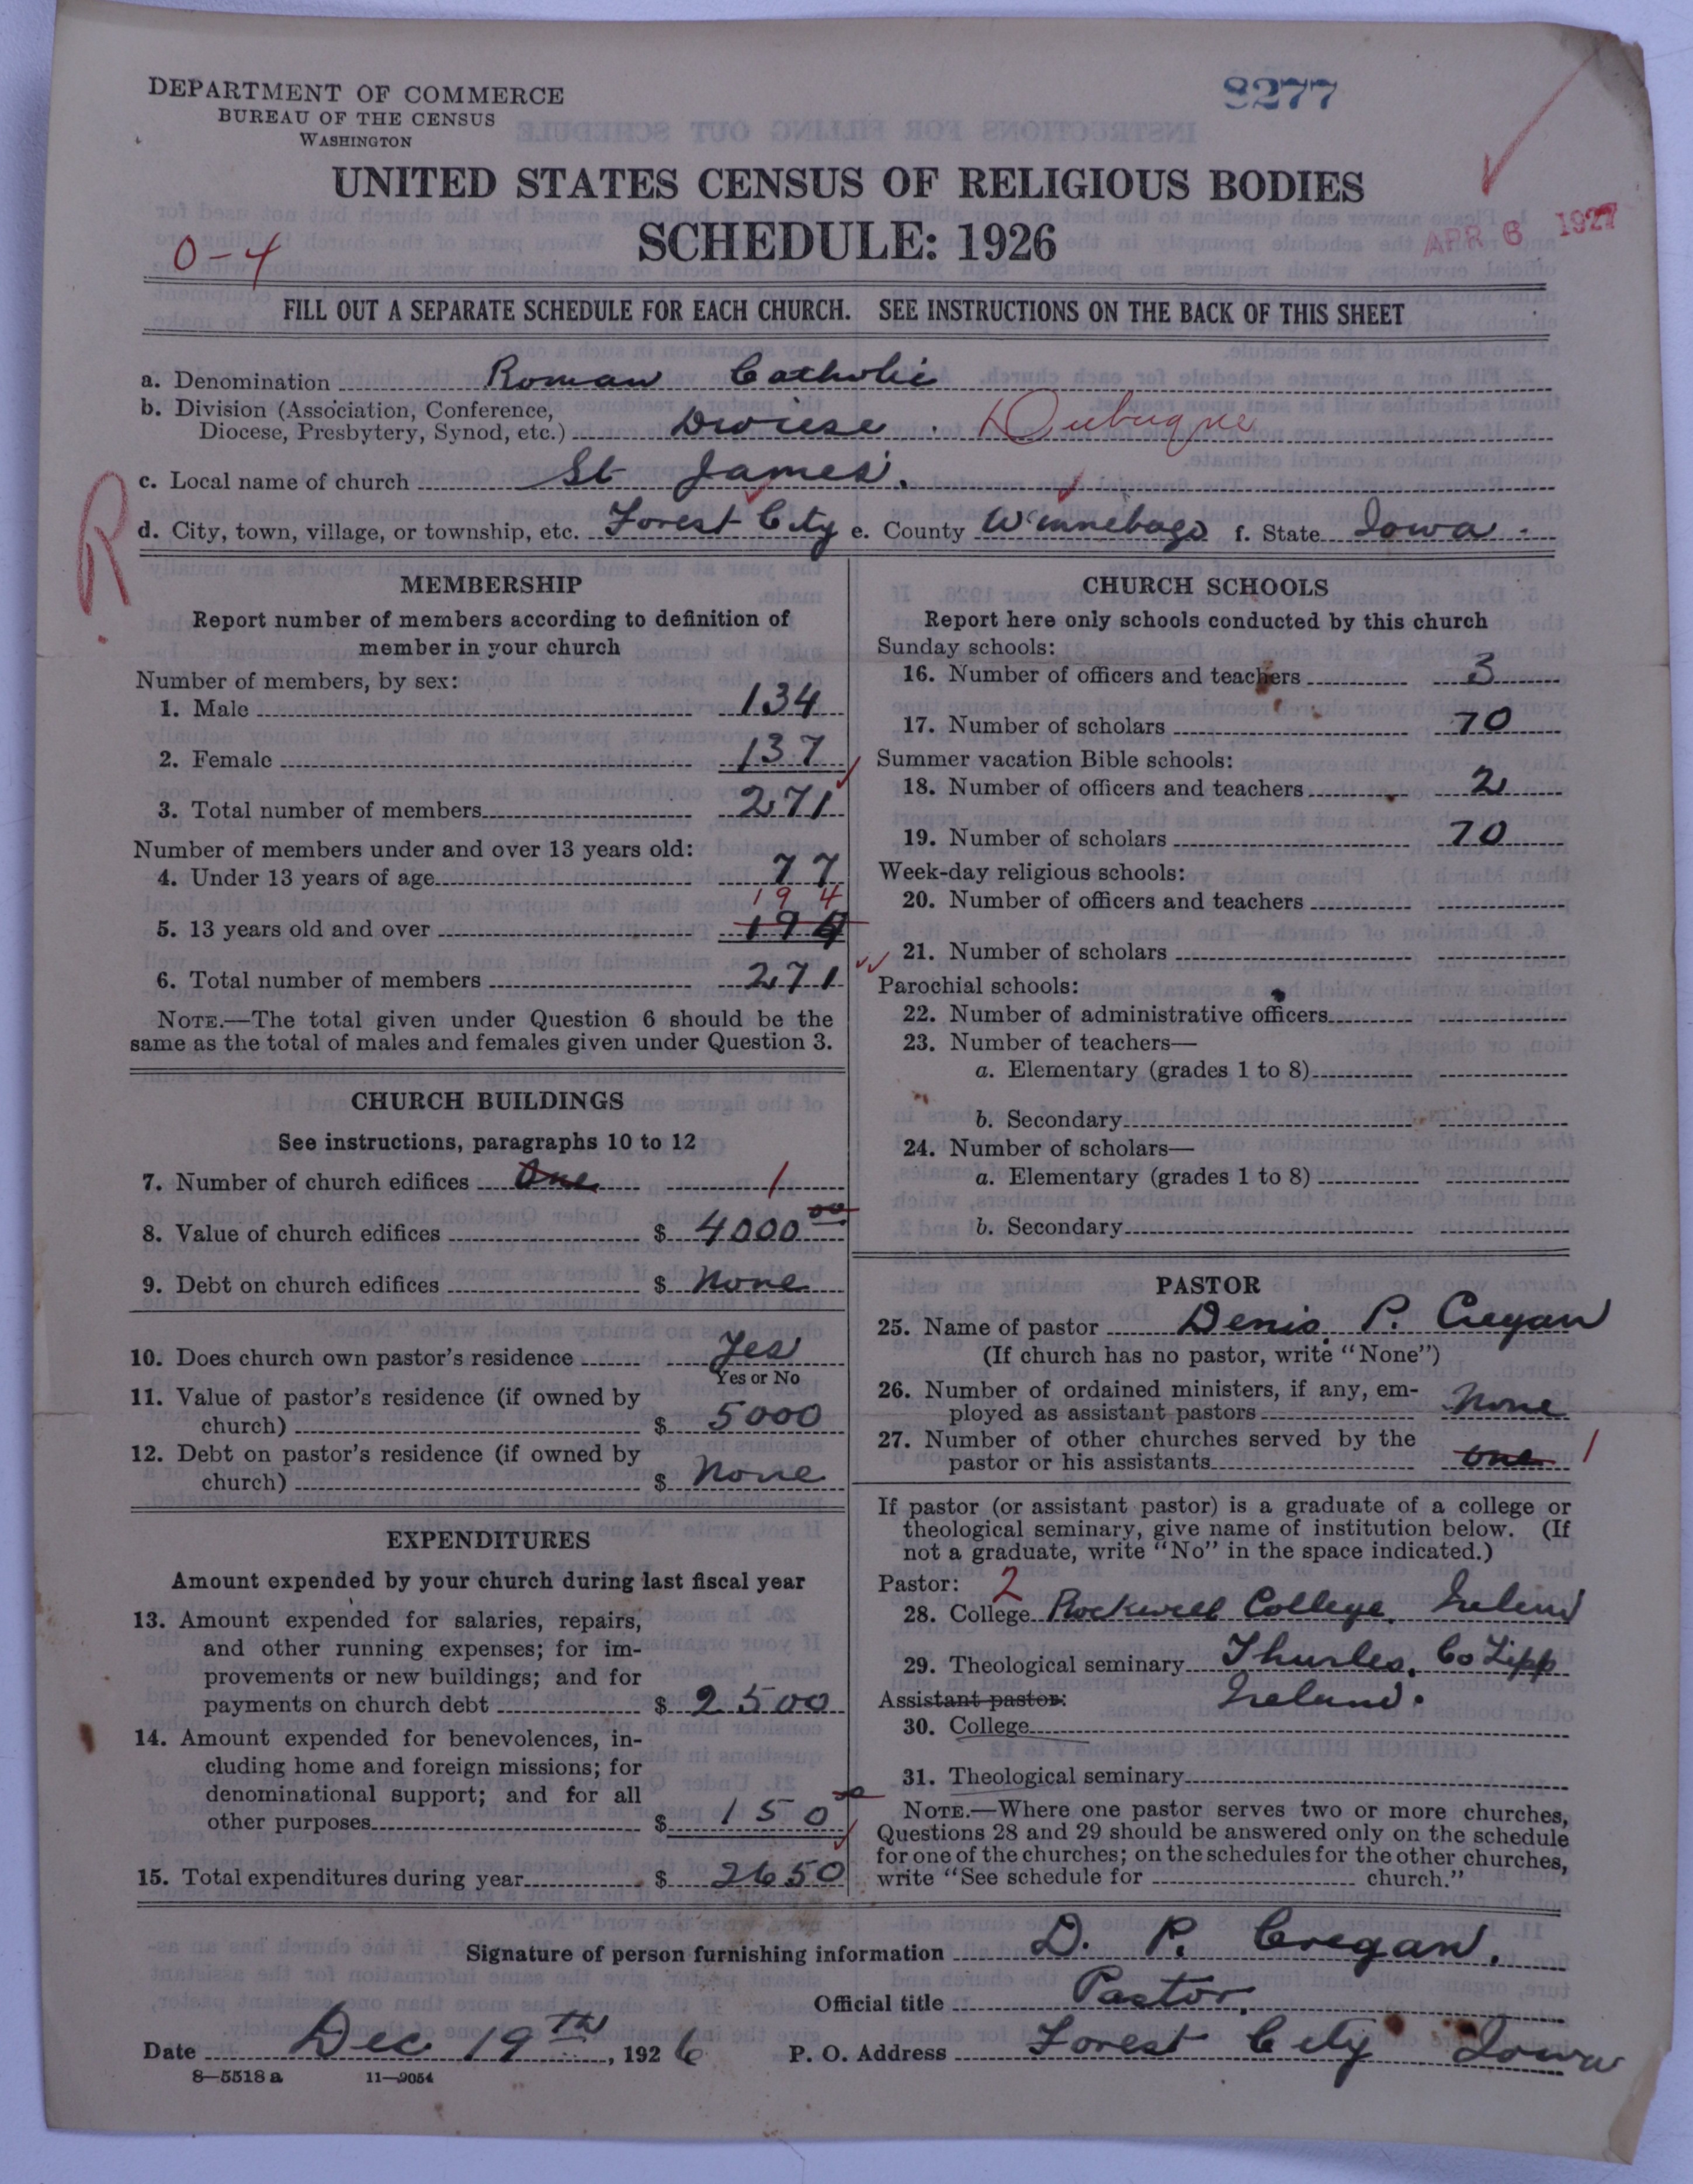 DEPARTMENT OF COMMERCE
BUREAU OF THE CENSUS
WASHINGTON
8277
UNITED STATES CENSUS OF RELIGIOUS BODIES
SCHEDULE: 1926
APR 6 1927
0-4
FILL OUT A SEPARATE SCHEDULE FOR EACH CHURCH. SEE INSTRUCTIONS ON THE BACK OF THIS SHEET
a. Denomination Roman Catholic
b. Division (Association, Conference, Diocese, Presbytery, Synod, etc.) Diocese. Dubuque
c. Local name of church St James.
d. City, town, village, or township, etc. Forest City e. County Winnebago f. State Iowa.
R
MEMBERSHIP
Report number of members according to definition of
member in your church
Number of members, by sex:
1. Male 134
2. Female 137
3. Total number of members 271
Number of members under and over 13 years old:
4. Under 13 years of age 77
194
5. 13 years old and over 194
6. Total number of members 271
NOTE.—The total given under Question 6 should be the
same as the total of males and females given under Question 3.
CHURCH BUILDINGS
See instructions, paragraphs 10 to 12
7. Number of church edifices One 1
8. Value of church edifices $ 4000 00
9. Debt on church edifices $ None
10. Does church own pastor's residence Yes
Yes or No
11. Value of pastor's residence (if owned by
church) $ 5000
12. Debt on pastor's residence (if owned by
church) $ None
EXPENDITURES
Amount expended by your church during last fiscal year
13. Amount expended for salaries, repairs,
and other running expenses; for im-
provements or new buildings; and for
payments on church debt $ 2500
14. Amount expended for benevolences, in-
cluding home and foreign missions; for
denominational support; and for all
other purposes $ 150
15. Total expenditures during year $ 2650
CHURCH SCHOOLS
Report here only schools conducted by this church
Sunday schools:
16. Number of officers and teachers 3
17. Number of scholars 70
Summer vacation Bible schools:
18. Number of officers and teachers 2
19. Number of scholars 70
Week-day religious schools:
20. Number of officers and teachers
21. Number of scholars
Parochial schools:
22. Number of administrative officers
23. Number of teachers—
a. Elementary (grades 1 to 8)
b. Secondary
24. Number of scholars—
a. Elementary (grades 1 to 8)
b. Secondary
PASTOR
25. Name of pastor Denis. P. Cregan
(If church has no pastor, write "None")
26. Number of ordained ministers, if any, em-
ployed as assistant pastors None
27. Number of other churches served by the
pastor or his assistants one 1
If pastor (or assistant pastor) is a graduate of a college or
theological seminary, give name of institution below. (If
not a graduate, write "No" in the space indicated.)
Pastor: 2
28. College Rockwell College, Ireland
29. Theological seminary Thurles, Co Tipp
Assistant pastor: Ireland.
30. College
31. Theological seminary
NOTE.—Where one pastor serves two or more churches,
Questions 28 and 29 should be answered only on the schedule
for one of the churches; on the schedules for the other churches,
write "See schedule for church."
Signature of person furnishing information D. P. Cregan.
Official title Pastor.
Date Dec 19th, 1926 P. O. Address Forest City Iowa
8—5518 a 11—9054